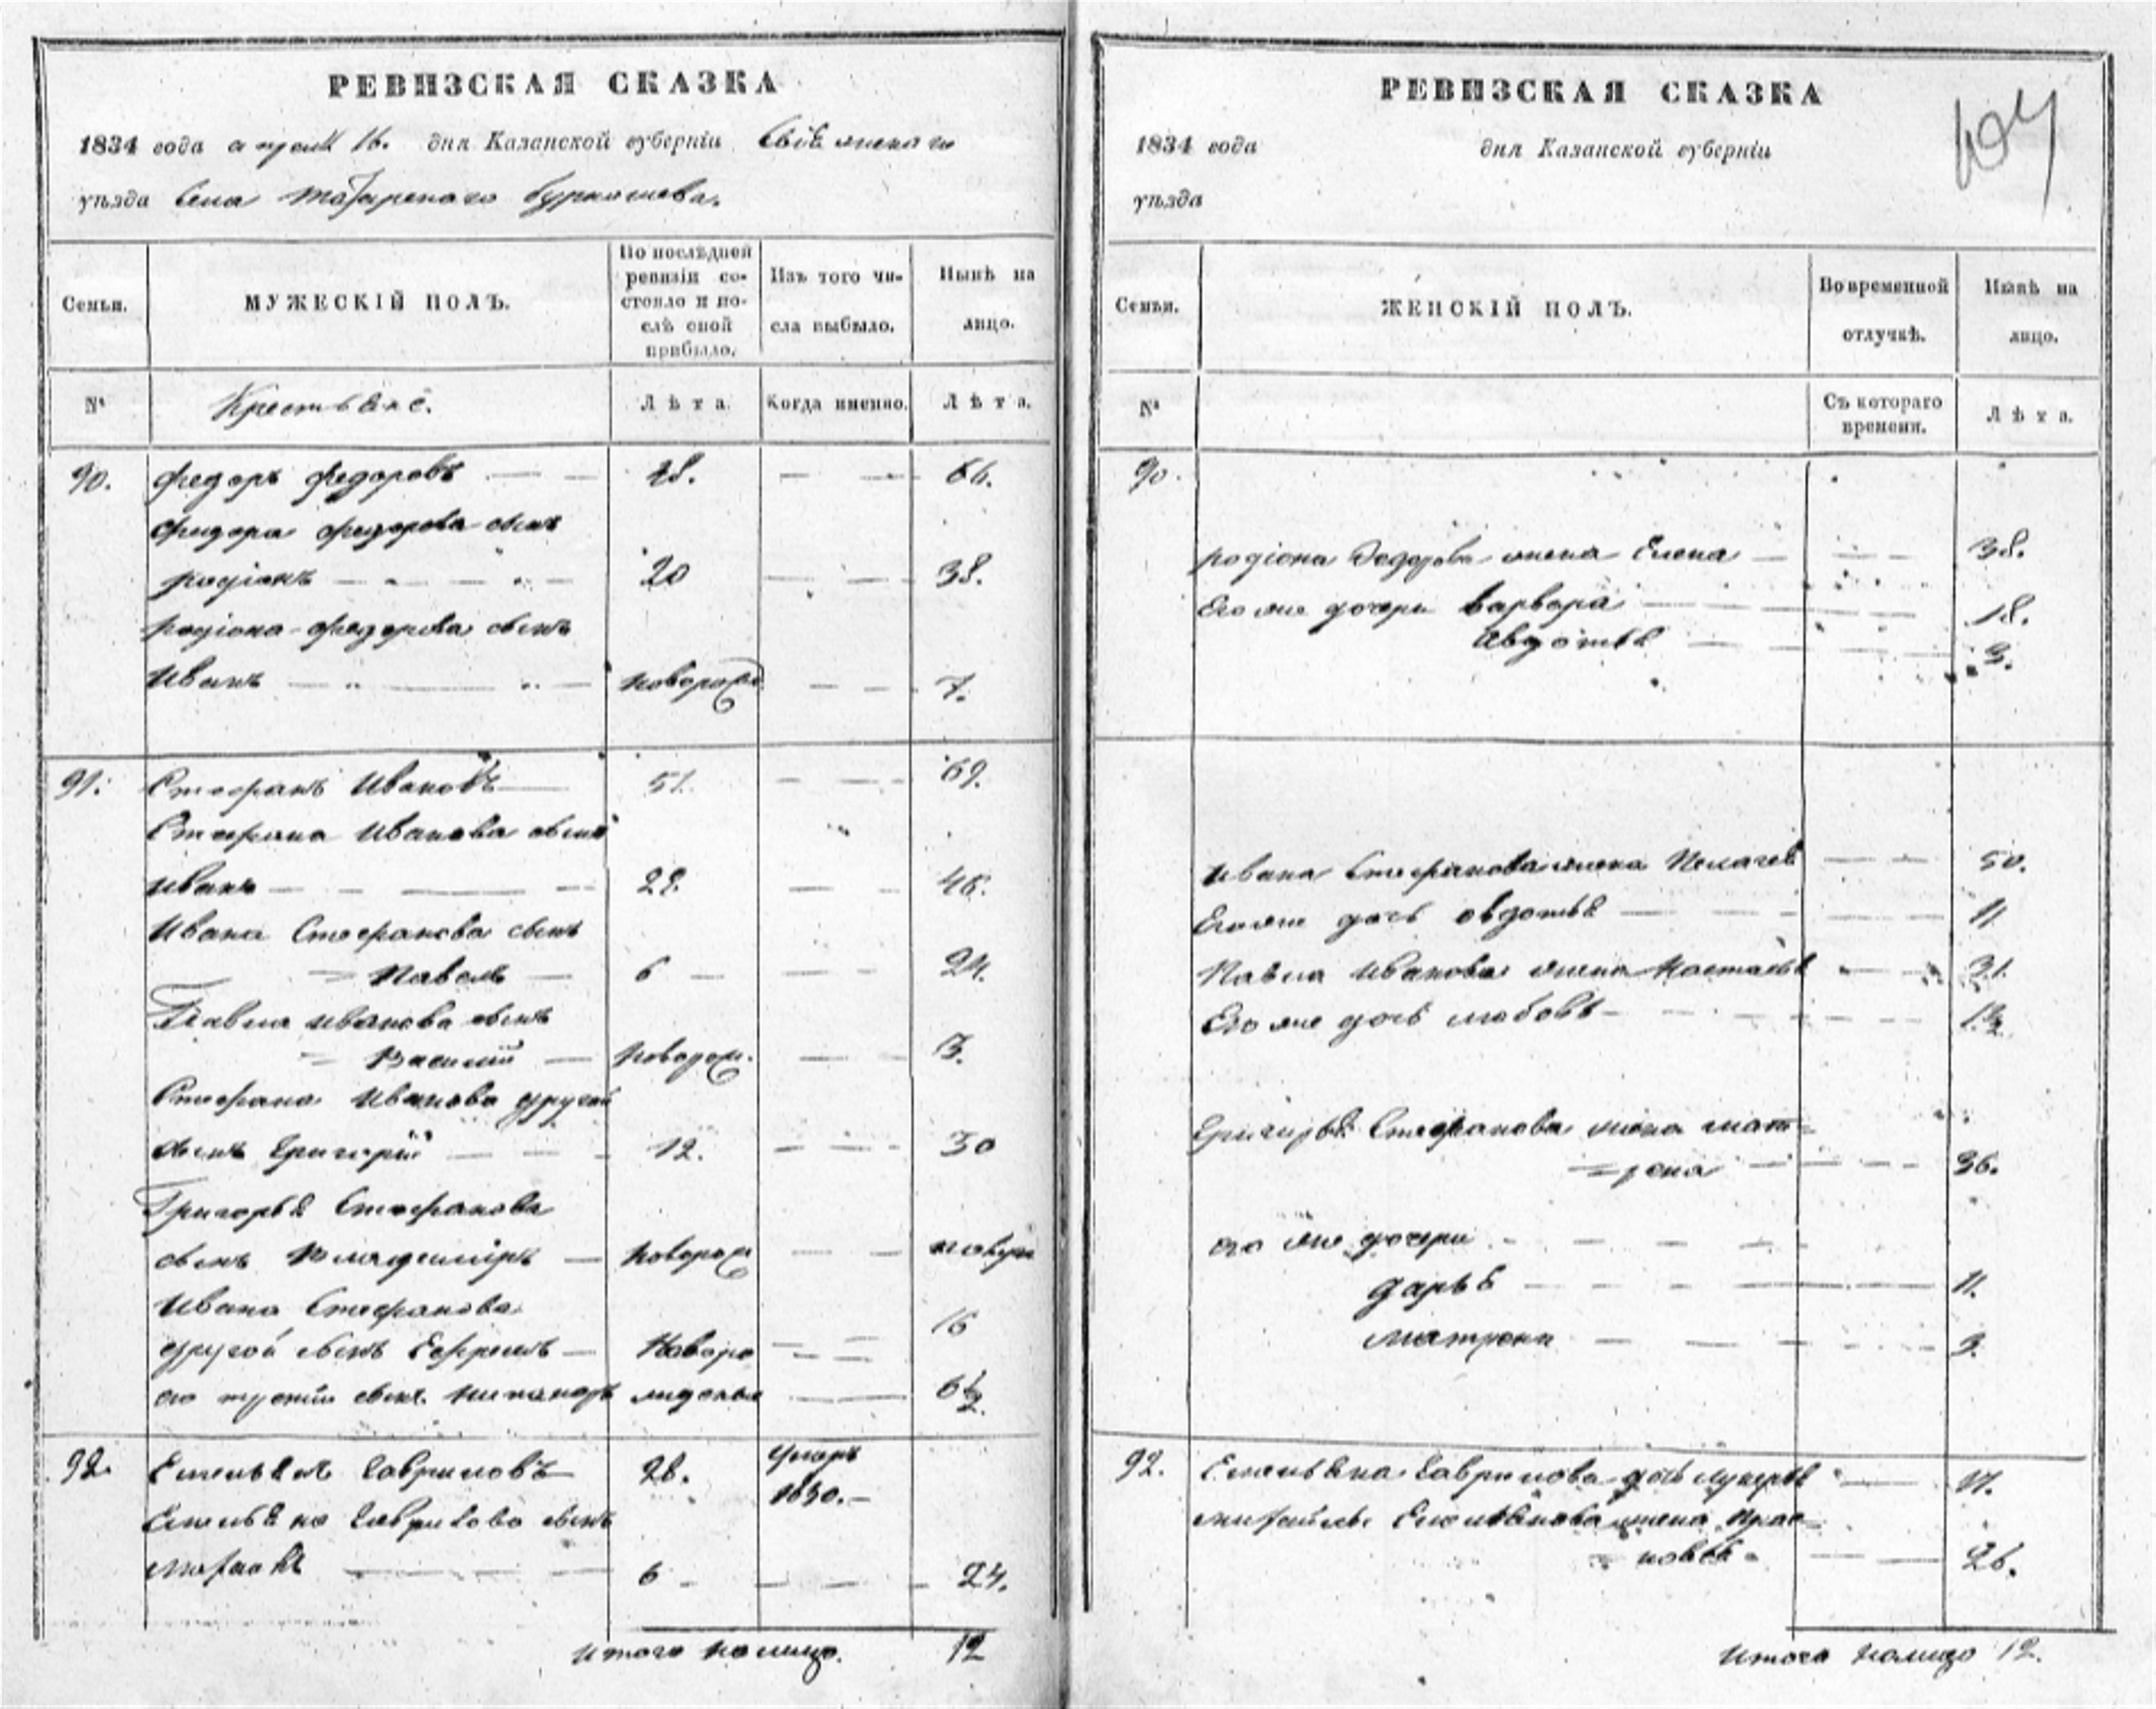 РЕВИЗСКАЯ СКАЗКА
1834 года апреля 16. дня Казанской губерніи Свіяжскаго
уѣзда Села Татарскаго Бурнашева.
Семьи.
МУЖЕСКІЙ ПОЛЪ.
По послѣдней
ревизіи со-
стояло и по-
слѣ оной
прибыло.
Изъ того чи-
сла выбыло.
Нынѣ на
лицо.
№
Крестьяне.
Лѣта.
Когда именно.
Лѣта.
90. Федоръ Федоровъ 48. 66.
Федора Федорова сынъ
Родіонъ 20 38.
Родіона Федорова сынъ
Иванъ новорож 7.
91. Стефанъ Ивановъ 51. 69.
Стефана Иванова сынъ
Иванъ 28. 46.
Ивана Стефанова сынъ
Павелъ 6 24.
Павла Иванова сынъ
Василій новорож. 3.
Стефана Иванова другой
сынъ Григорій 12. 30
Григорья Стефанова
сынъ Владиміръ новорож
Ивана Стефанова 16
другой сынъ Ефремъ Новоро
его третій сынъ Никаноръ жденые 6½
92. Емельянъ Гавриловъ 26. умеръ
1830.
Емельяна Гаврилова сынъ
6 24.
Итого налицо. 12
РЕВИЗСКАЯ СКАЗКА
1834 года дня Казанской губерніи
уѣзда
Семьи.
ЖЕНСКІЙ ПОЛЪ.
Во временной
отлучкѣ.
Нынѣ на
лицо.
№
Съ котораго
времени.
Лѣта.
90.
Родіона Федорова жена Елена 38.
Его же дочери Варвара 18.
Авдотья 3.
Ивана Стефанова жена Пелагея 50.
Его же дочь Овдотья 11
Павла Иванова жена Настасья 31.
Его же дочь Любовь 1½
Григорья Стефанова жена Мат=
=рена 36.
его же дочери
Дарья 11.
Матрена 9.
92. Емельяна Гаврилова дочь Лукерья 17.
Емельянова жена Прас=
ковья 26.
Итого налицо 12.